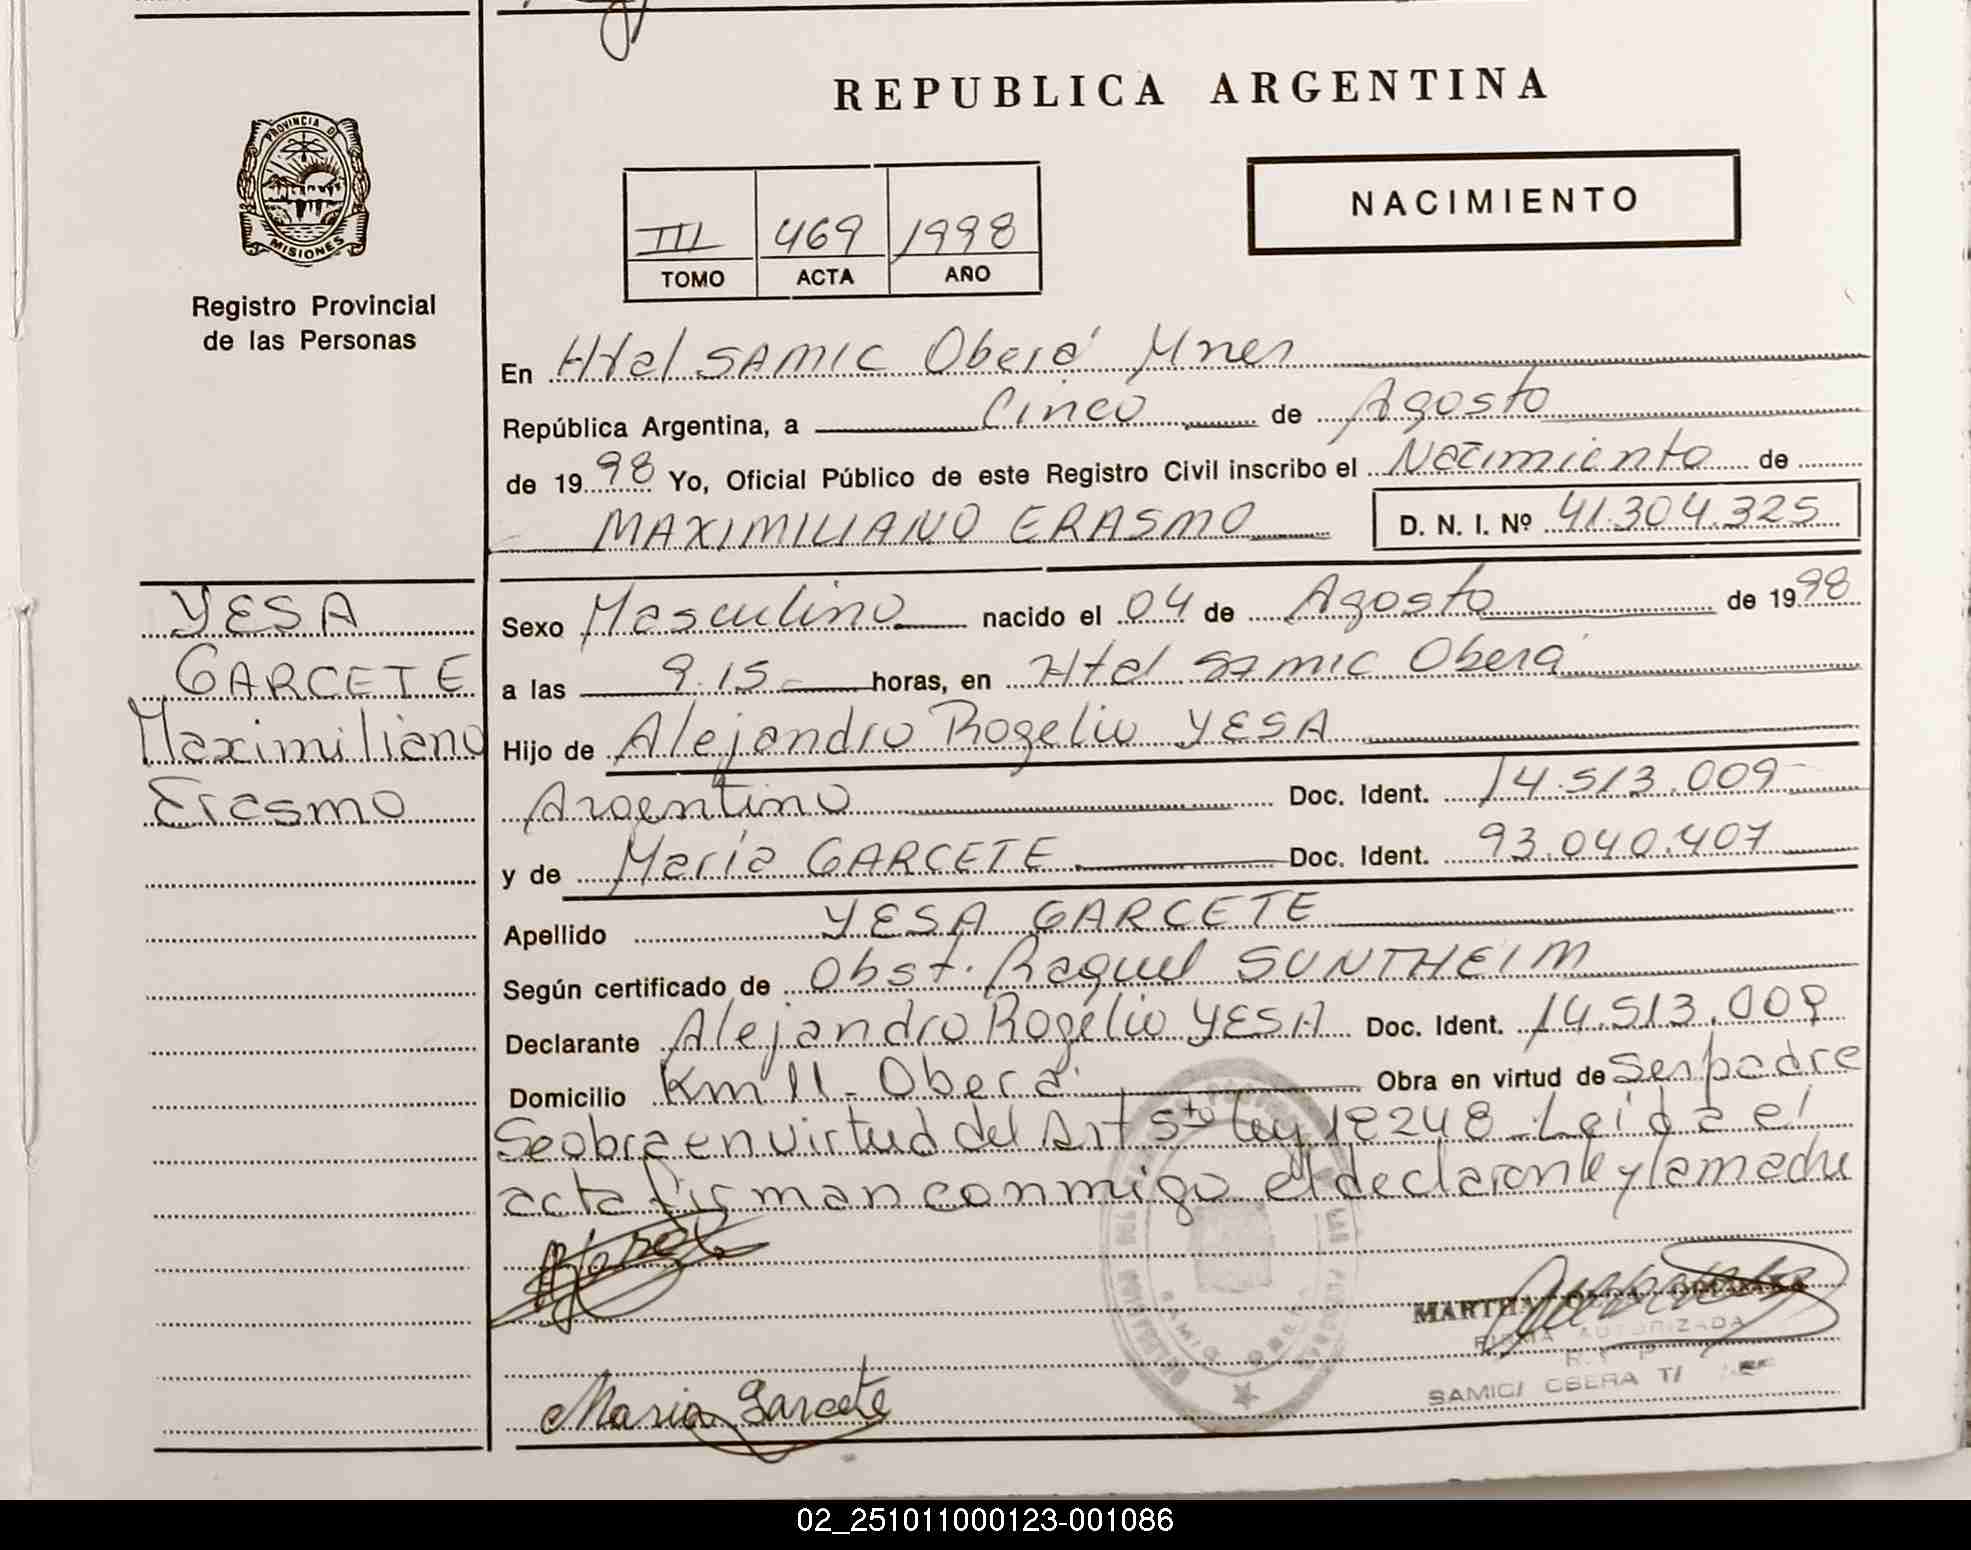 REPUBLICA ARGENTINA
PROVINCIA DE
MISIONES
Registro Provincial
de las Personas
III 469 1998
TOMO ACTA AÑO
NACIMIENTO
En Htal SAMIC Oberá Mnes
República Argentina, a Cinco de Agosto
de 1998 Yo, Oficial Público de este Registro Civil inscribo el Nacimiento de
MAXIMILIANO ERASMO D. N. I. Nº 41.304.325
YESA
GARCETE
Maximiliano
Erasmo
Sexo Masculino nacido el 04 de Agosto de 1998
a las 9.15 horas, en Htal SAMIC Oberá
Hijo de Alejandro Rogelio YESA
Argentino Doc. Ident. 14.513.009
y de María GARCETE Doc. Ident. 93.040.407
Apellido YESA GARCETE
Según certificado de Obst. Raquel SUNTHEIM
Declarante Alejandro Rogelio YESA Doc. Ident. 14.513.009
Domicilio Km 11 - Oberá Obra en virtud de Ser padre
Se obra en virtud del Art 5to ley 18248 - Leída el
acta firman conmigo el declarante y la madre
MARTHA
FIRMA AUTORIZADA
SAMIC/ OBERA
Maria Garcete
02_251011000123-001086